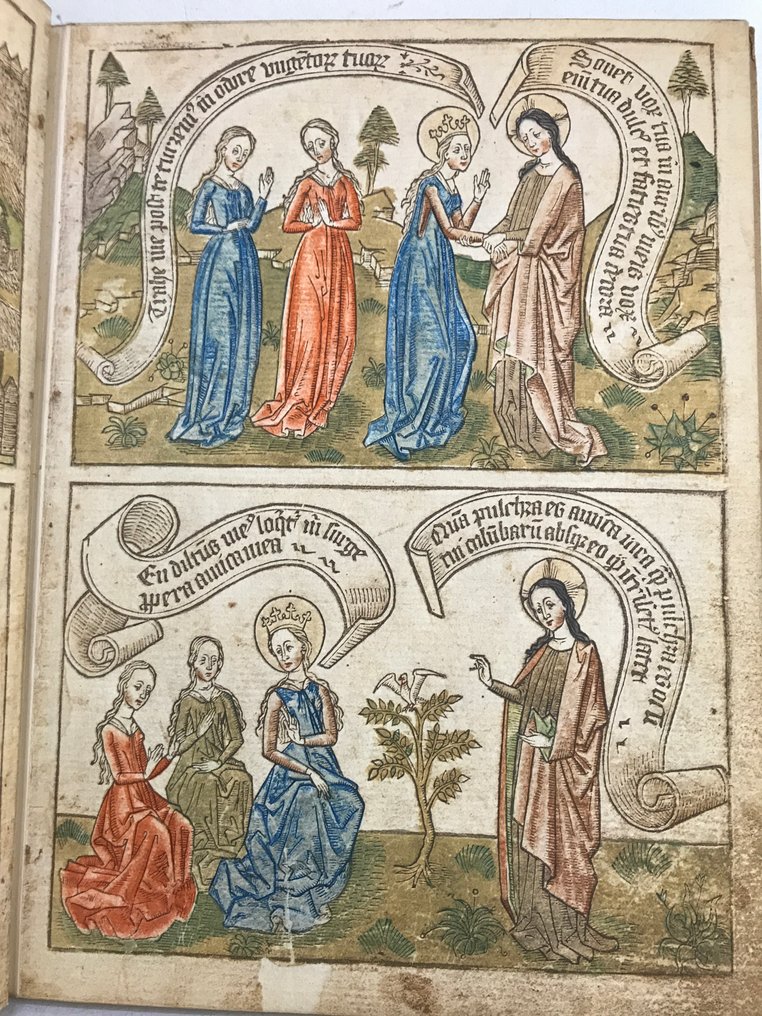 Trahe me post te curremꝰ in odore vngētoꝝ tuoꝝ
Sonet vox tua in auribꝰ meis vox
eni tua dulcꝭ et facies tua decora
En dilctus meꝰ loqͥtʳ m̄ surge
ꝓpera amica mea
Quā pulchra es amica mea qͣ pulchra es oculi
tui colūbarū absqꝫ eo qͩ ītrīsecꝰ latet